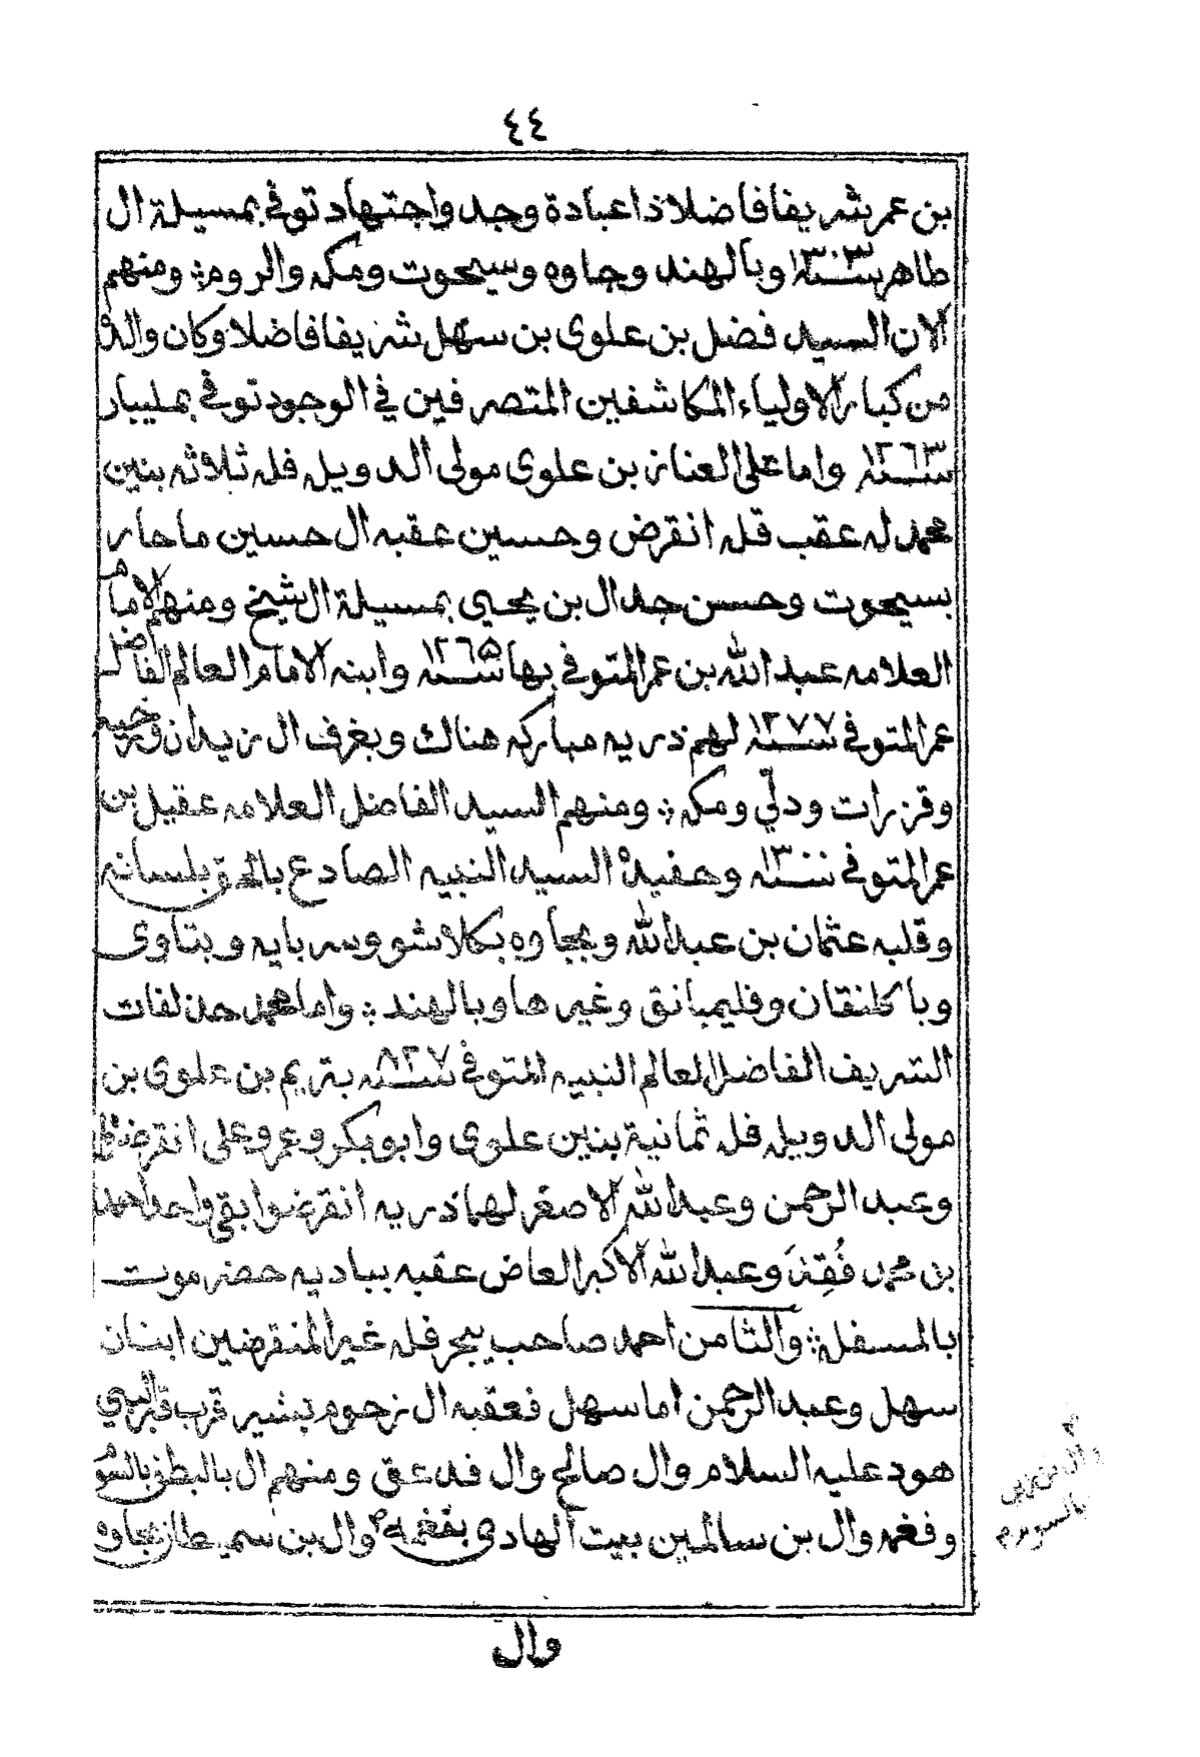 ٤٤
بن عمر شريفا فاضلا ذا عبادة وجد واجتهاد توفي بمسيلة ال
طاهر سنه ١٣٠٣ وبالهند وجاوه وسيحوت ومكه والروم ؞ ومنهم
الان السيد فضل بن علوي بن سهل شريفا فاضلا وكان والده
من كبار الاولياء المكاشفين المتصرفين في الوجود توفي بمليبار
سنه ١٢٦٣ واما علي العناز بن علوي مولى الدويله فله ثلاثه بنين
محمد له عقب قله انقرض وحسين عقبه ال حسين ماجار
بسيحوت وحسن جد ال بن يحيى بمسيلة ال شيخ ومنهم الامام
العلامه عبد الله بن عمر المتوفي بها سنه ١٢٦٥ وابنه الامام العالم الفاضل
عمر المتوفي سنه ١٢٧٧ لهم ذريه مباركه هناك وبغرف ال زيدان
وقزرات ودلي ومكه ؞ ومنهم السيد الفاضل العلامه عقيل بن
عمر المتوفي سنه ١٣٠٠ وحفيده السيد النبيه الصادع بالحق بلسانه
وقلبه عثمان بن عبد الله وبجاوه بكلاشو وسربايه وبتاوى
وباكلنقان وفليمبانق وغيرها وبالهند ؞ واما محمد جذلفات
الشريف الفاضل العالم النبيه المتوفي سنه ٨٢٧ بتريم بن علوي بن
مولى الدويله فله ثمانية بنين علوي وابوبكر وعمر وعلي انقرضوا
وعبد الرحمن وعبد الله الاصغر لهما ذريه انقرضوا بقي واحد احمد
بن محمد فُقِدَ وعبد الله الاكبر العاض عقبه بباديه حضرموت
بالمسفله ؞ والثامن احمد صاحب يبحر فله غير المنقرضين ابنان
سهل وعبد الرحمن اما سهل فعقبه ال زحوم بشير قرب قبر النبي
هود عليه السلام وال صالح وال فدعق ومنهم ال بالبطز بالسوم
وفغمه وال بن سالمين ببيت الهادي بفغمه وال بن سميطان بجاوه
وال
بالسوم